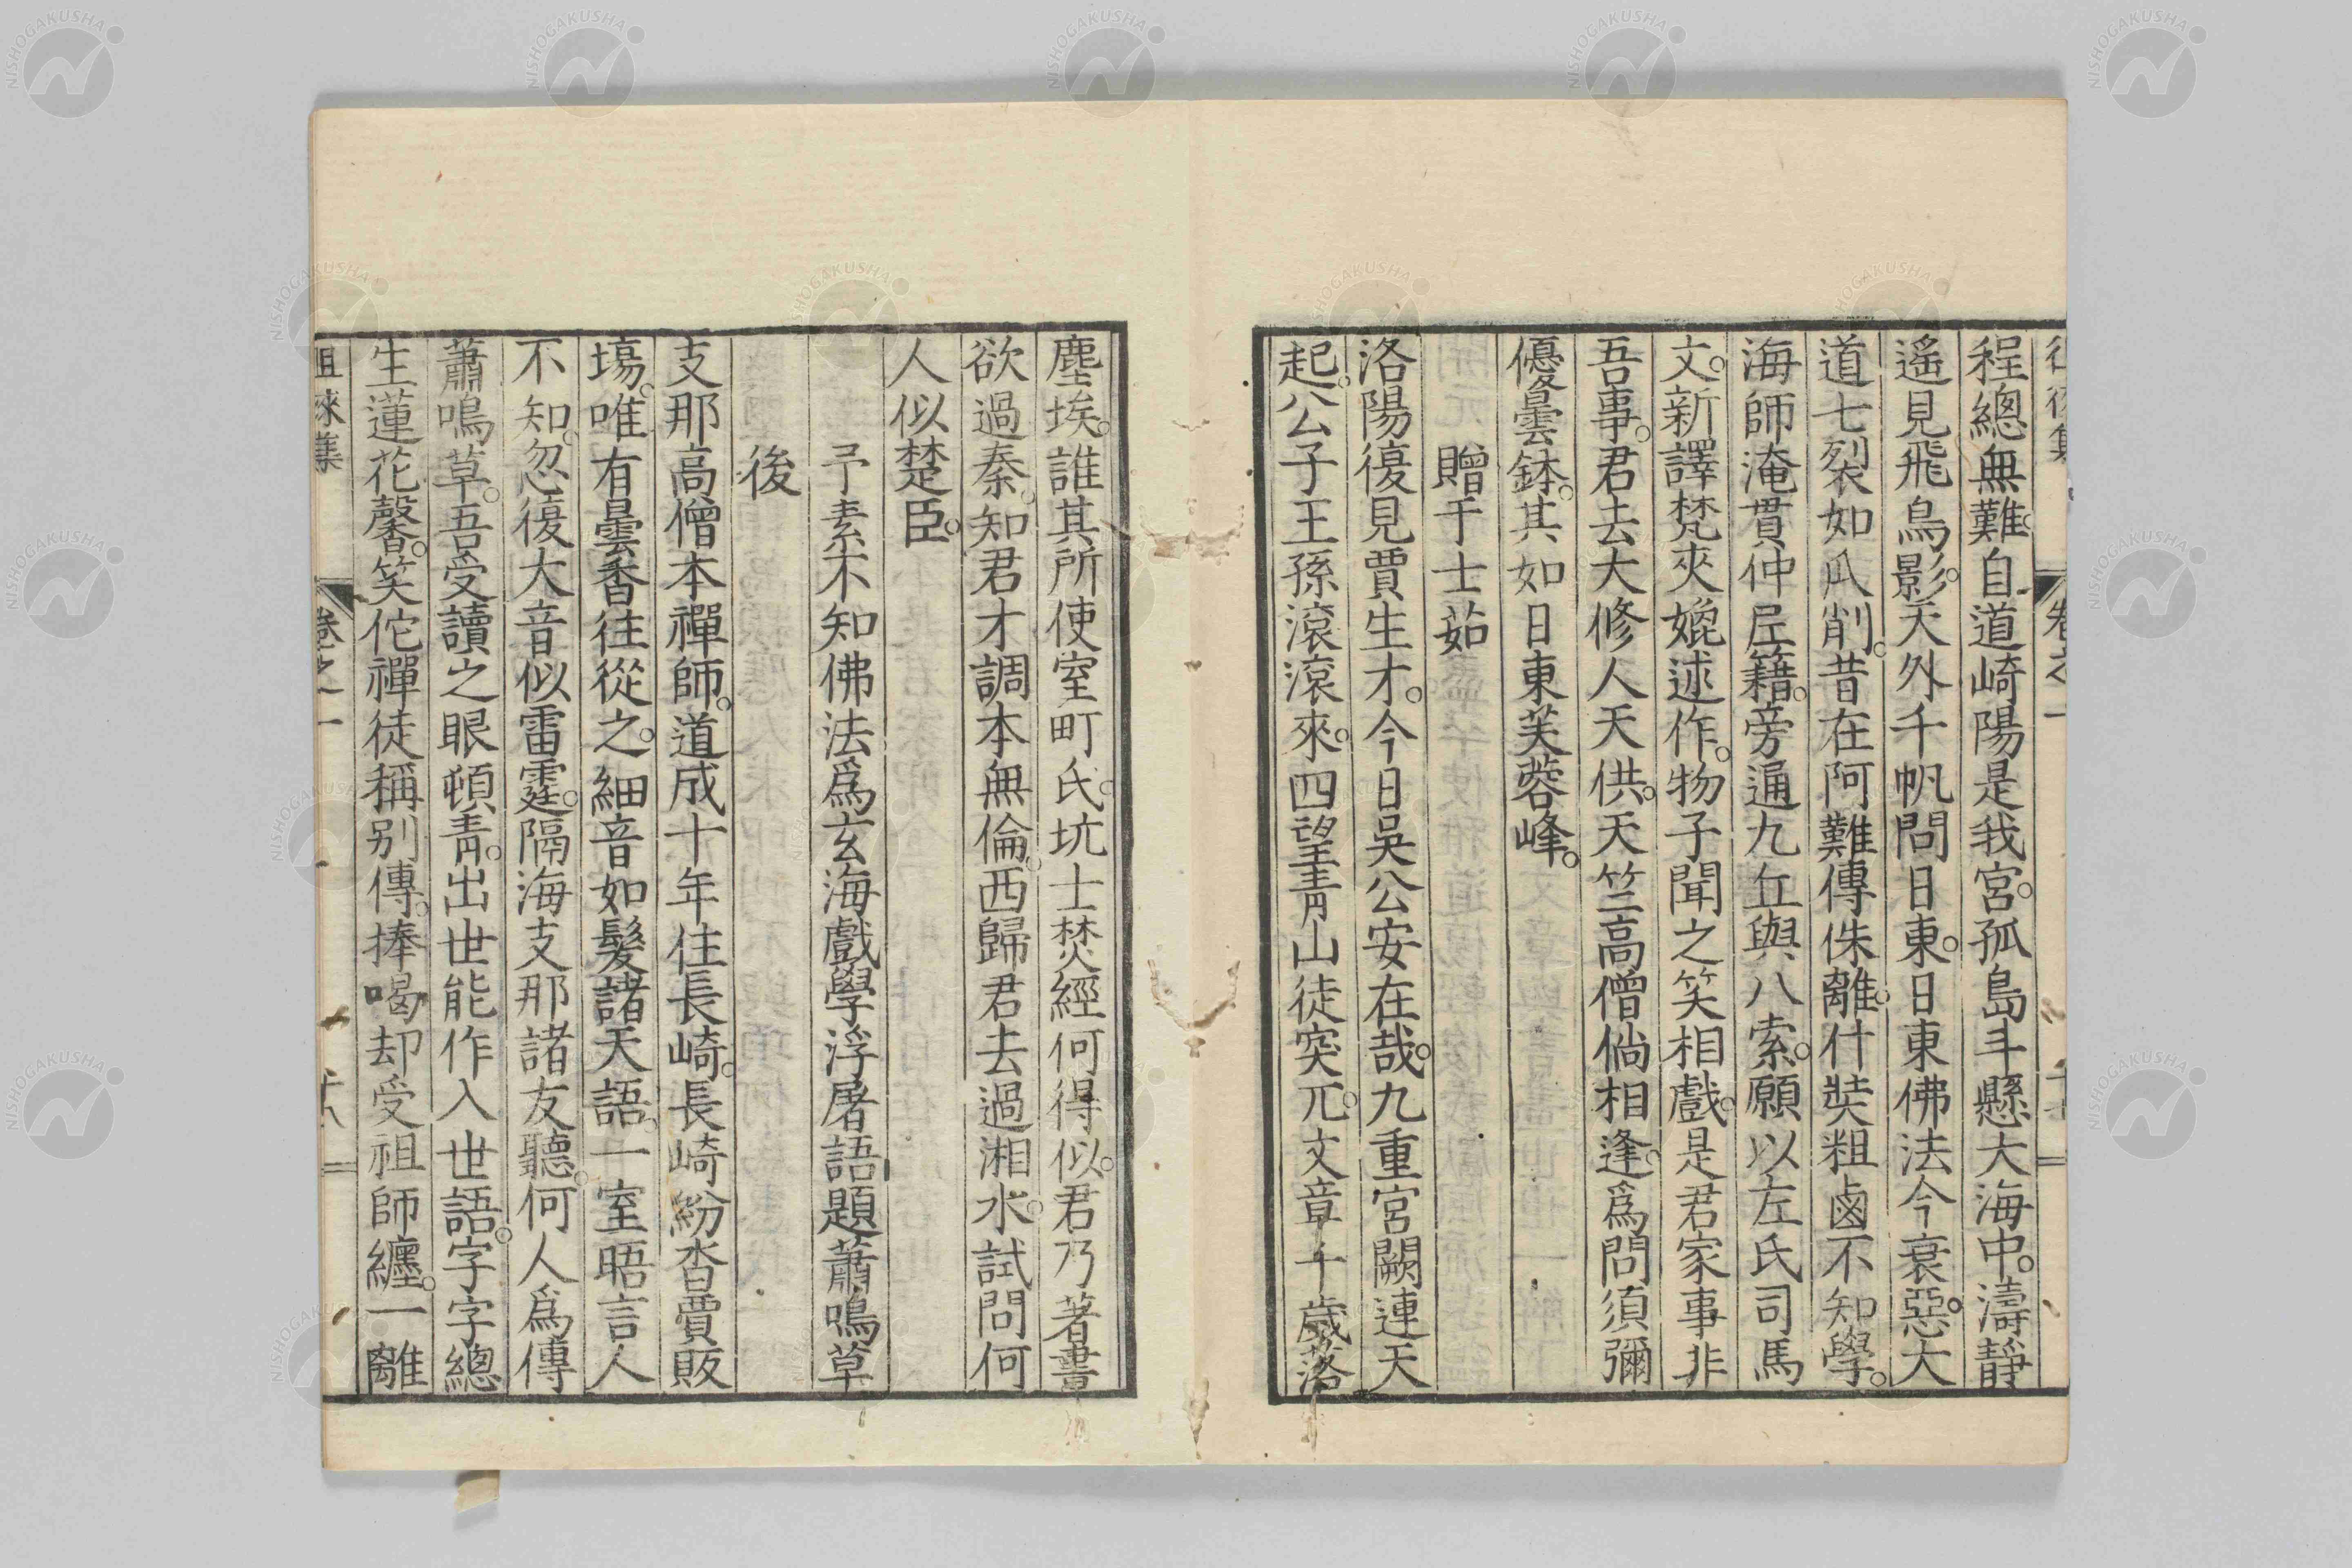 程總無難。自道崎陽是我宮。孤島斗懸大海中。濤靜
遙見飛鳥影。天外千帆問日東。日東佛法今衰惡。大
道七裂如瓜削。昔在阿難傳侏離。什奘粗鹵不知學。
海師淹貫仲尼籍。旁通九丘與八索。願以左氏司馬
文。新譯梵夾媲述作。物子聞之笑相戲。是君家事非
吾事。君去大修人天供。天竺高僧倘相逢。爲問須彌
優曇鉢。其如日東芙蓉峰。
贈于士茹
洛陽復見賈生才。今日吳公安在哉。九重宮闕連天
起。公子王孫滾滾來。四望靑山徒突兀。文章千歲落
塵埃。誰其所使室町氏。坑士焚經何得似。君乃著書
欲過秦。知君才調本無倫。西歸君去過湘水。試問何
人似楚臣。
予素不知佛法爲玄海戲學浮屠語題蕭鳴草
後
支那高僧本禪師。道成十年住長崎。長崎紛沓賈販
塲。唯有曇香往從之。細音如髮諸天語。一室晤言人
不知。忽復大音似雷霆。隔海支那諸友聽。何人爲傳
蕭鳴草。吾受讀之眼頓靑。出世能作入世語。字字總
生蓮花馨。笑佗禪徒稱別傳。捧喝却受祖師纏。一離
徂徠集 卷之一 十八